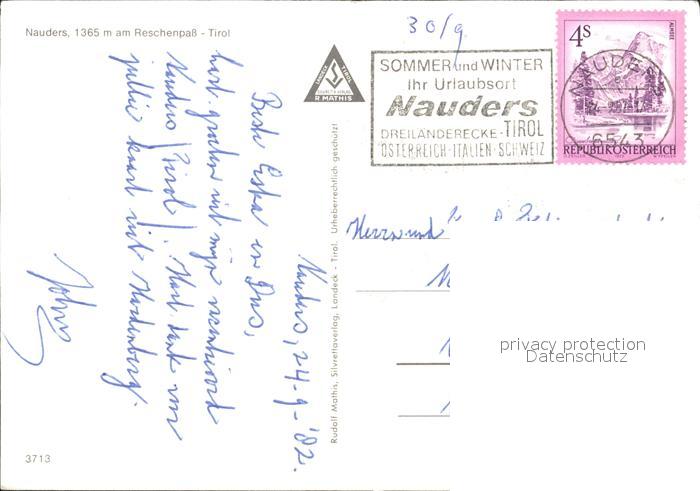 Nauders, 1365 m am Reschenpaß - Tirol
30/9
SOMMER und WINTER
Ihr Urlaubsort
Nauders
DREILÄNDERECKE - TIROL
ÖSTERREICH - ITALIEN - SCHWEIZ
4S
ALMSEE
REPUBLIK ÖSTERREICH
NAUDERS
6543
R. MATHIS
Nauders, 24-9-'82.
Beste in
hart groeten uit mijn
Nauders /Tirol/. Hart. dank voor
jullie kaart uit Hardenberg.
Johns
Rudolf Mathis, Silvrettaverlag, Landeck - Tirol. Urheberrechtlich geschützt
Herrn und
privacy protection
Datenschutz
3713